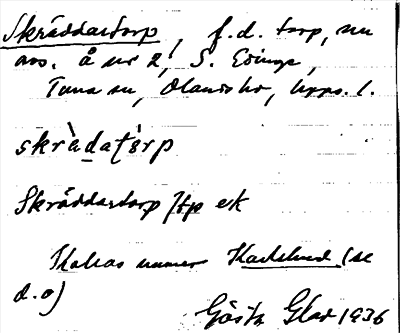 Skräddartorp, f.d. torp, nu
avs. å nr 2, S. Edinge,
Tuna sn, Olands hd, Upps. l.
skrädatårp
Skräddartorp Jtp ek
Kallas numer Karlslund (se
d.o)
Gösta Glad 1936